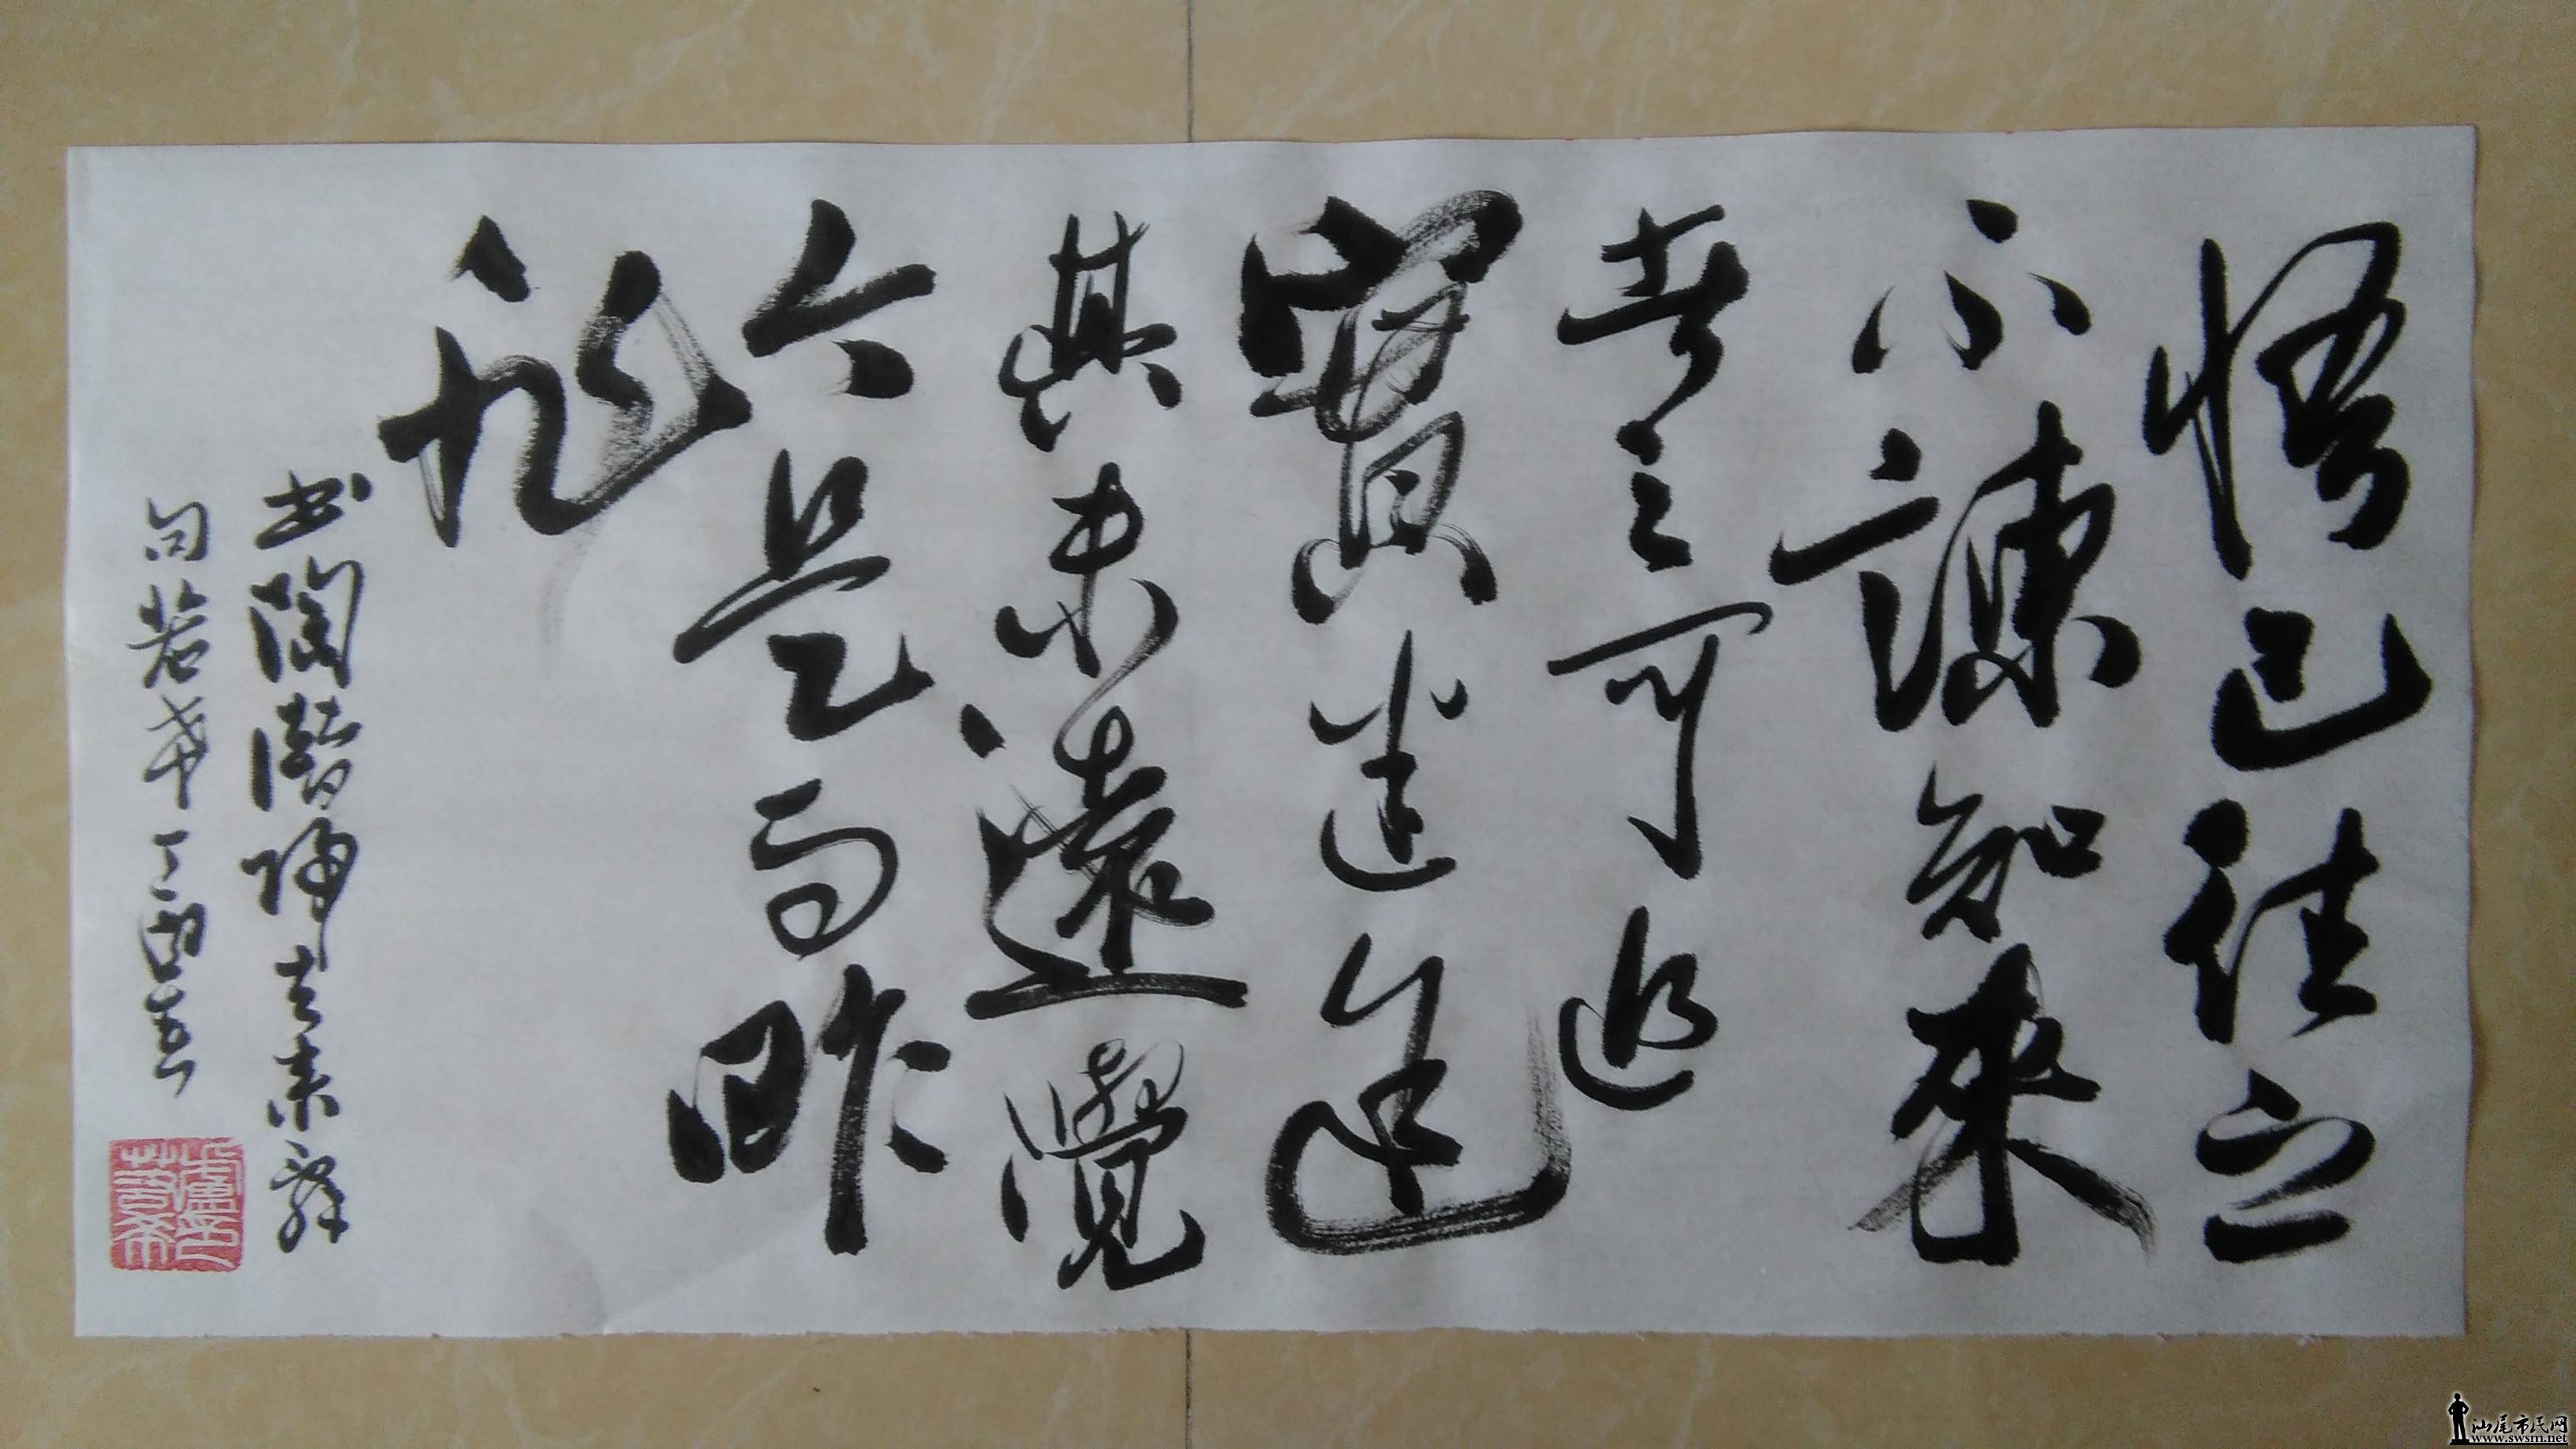 悟已往之
不諫知來
者之可追
實迷途
其未遠覺
今是而昨
非
书陶潛歸去来辭
句若丁酉
汕尾市民网
www.swsm.net